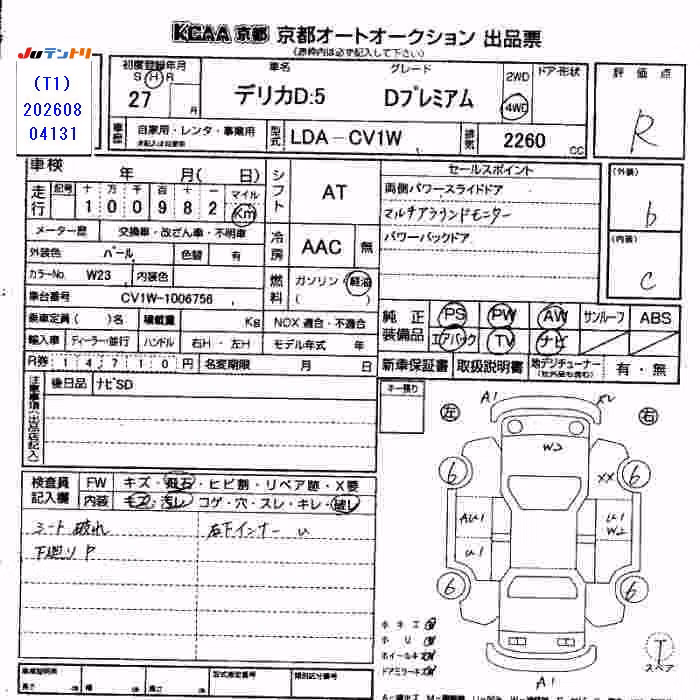 KCAA 京都 京都オートオークション 出品票
(赤枠内は必ず記入して下さい)
JUテントリー
(T1)
202608
04131
初度登録年月
S H R
27 月
車名
デリカD:5
グレード
Dプレミアム
2WD
4WD
ドア・形状
評価点
R
車歴 自家用・レンタ・事業用
型式 LDA-CV1W
排気 2260 cc
車検 年 月( 日)
走行 記号 十 万 千 百 十 一 マイル
1 0 0 9 8 2 Km
シフト AT
セールスポイント
両側パワースライドドア
マルチアラウンドモニター
パワーバックドア
(外装)
b
(内装)
C
メーター歴 交換車・改ざん車・不明車
冷房 AAC 無
外装色 パール 色替 有
カラーNo. W23 内装色
燃料 ガソリン 軽油
( )
車台番号 CV1W-1006756
乗車定員( )名 積載量 Kg NOX 適合・不適合
輸入車 ディーラー・並行 ハンドル 右H・左H モデル年式 年
R券 1 4 7 1 0 円 名変期限 月 日
純正装備品 PS PW AW サンルーフ ABS
エアバック TV ナビ
新車保証書 取扱説明書 地デジチューナー 有・無
(社外品も含む)
注意事項(出品店記入)
後日品 ナビSD
キー預り
左 右
A1
W2
XX
6 6
AU1
U1
U1
W2
6 6
A1
検査員記入欄
FW キズ・飛石・ヒビ割・リペア跡・X要
内装 キズ・汚レ・コゲ・穴・スレ・キレ・破レ
シート破れ
下廻りP
右下インナー U
ホイールキズ
ドアミラーキズ
T
スペア
車庫証明用
長さ cm 幅 cm 高さ cm
型式指定番号
類別区分番号